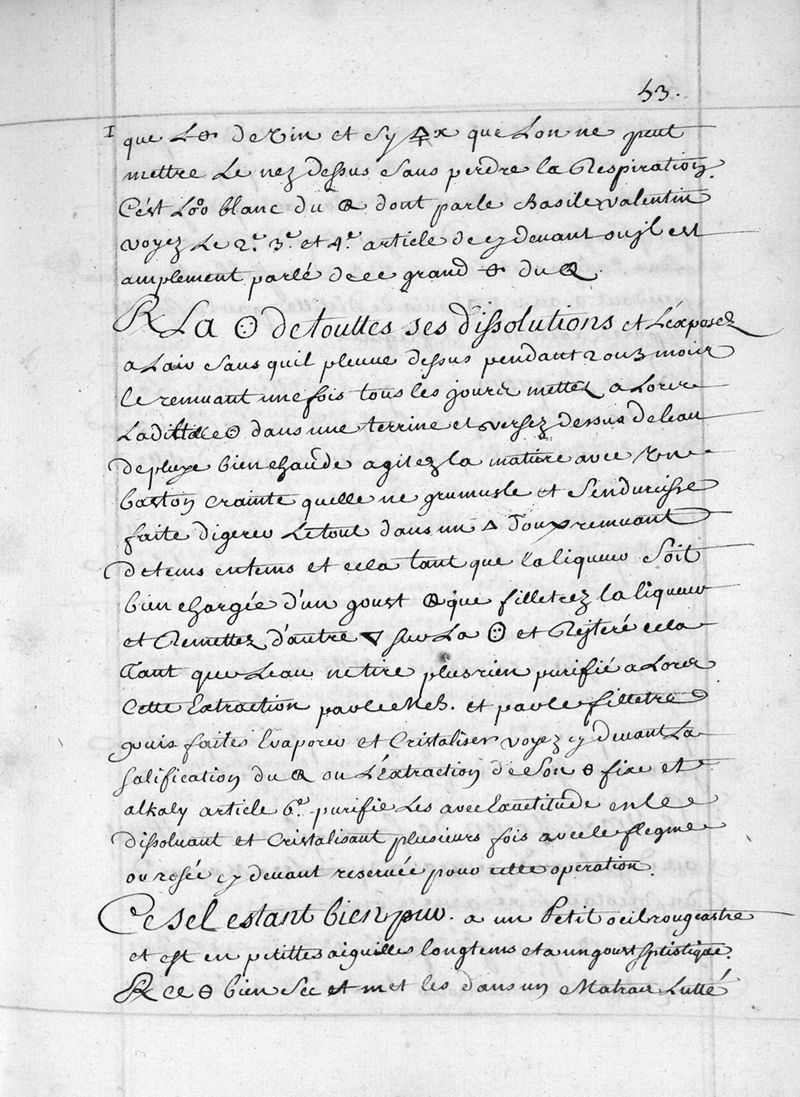 53.
que L🜔 de vin et sy 🜍x que Lon ne peut
mettre Le nez dessus sans perdre la Respiration.
C'est L'oo blanc du 🜖 dont parle Basile valentin
voyez Le 2.e 3.e et 4.e article de cy devant ou jl est
amplement parlé de ce grand 🜔 du 🜖.
℞ La ☉ de touttes ses dissolutions et L'éxposez
a Lair sans quil pleuue dessus pendant 2 ou 3 moir
le remuant une fois tous les jourir mettez a Lorir
Laditte ☉ dans une terrine et versez dessus de leau
de pluye bien chaude agitez la matiere avec un
baston crainte quelle ne grumusle et s'endurcisse
faite digerer Letout dans un 🜂 doux remuant
de tems entems et cela tant que la liqueur soit
bien chargée d'un goust 🜖 que filletrez la liqueur
et Remettez d'autre 🜄 sur La ☉ et Rejteré cela
Tant que Leau ne tire plus rien purifié a Lorir
Cette Extraction par le MeB. et par le filletre
puis faites Evaporer et Cristaliser voyez cy devant La
salification du 🜖 ou L'Extraction de son 🜔 fixe et
alkaly article 6.e purifié Les avec Exactitude en le
dissoluant et Cristalisant plusieurs fois avec le flegme
ou rosée cy devant reservée pour cette operation.
Ce sel estant bien pur. a un Petit oeil rougeastre
et est en petittes aiguilles longtems et a un goust stiptique.
℞ ce 🜔 bien sec et met les dans un Matrair Lutté